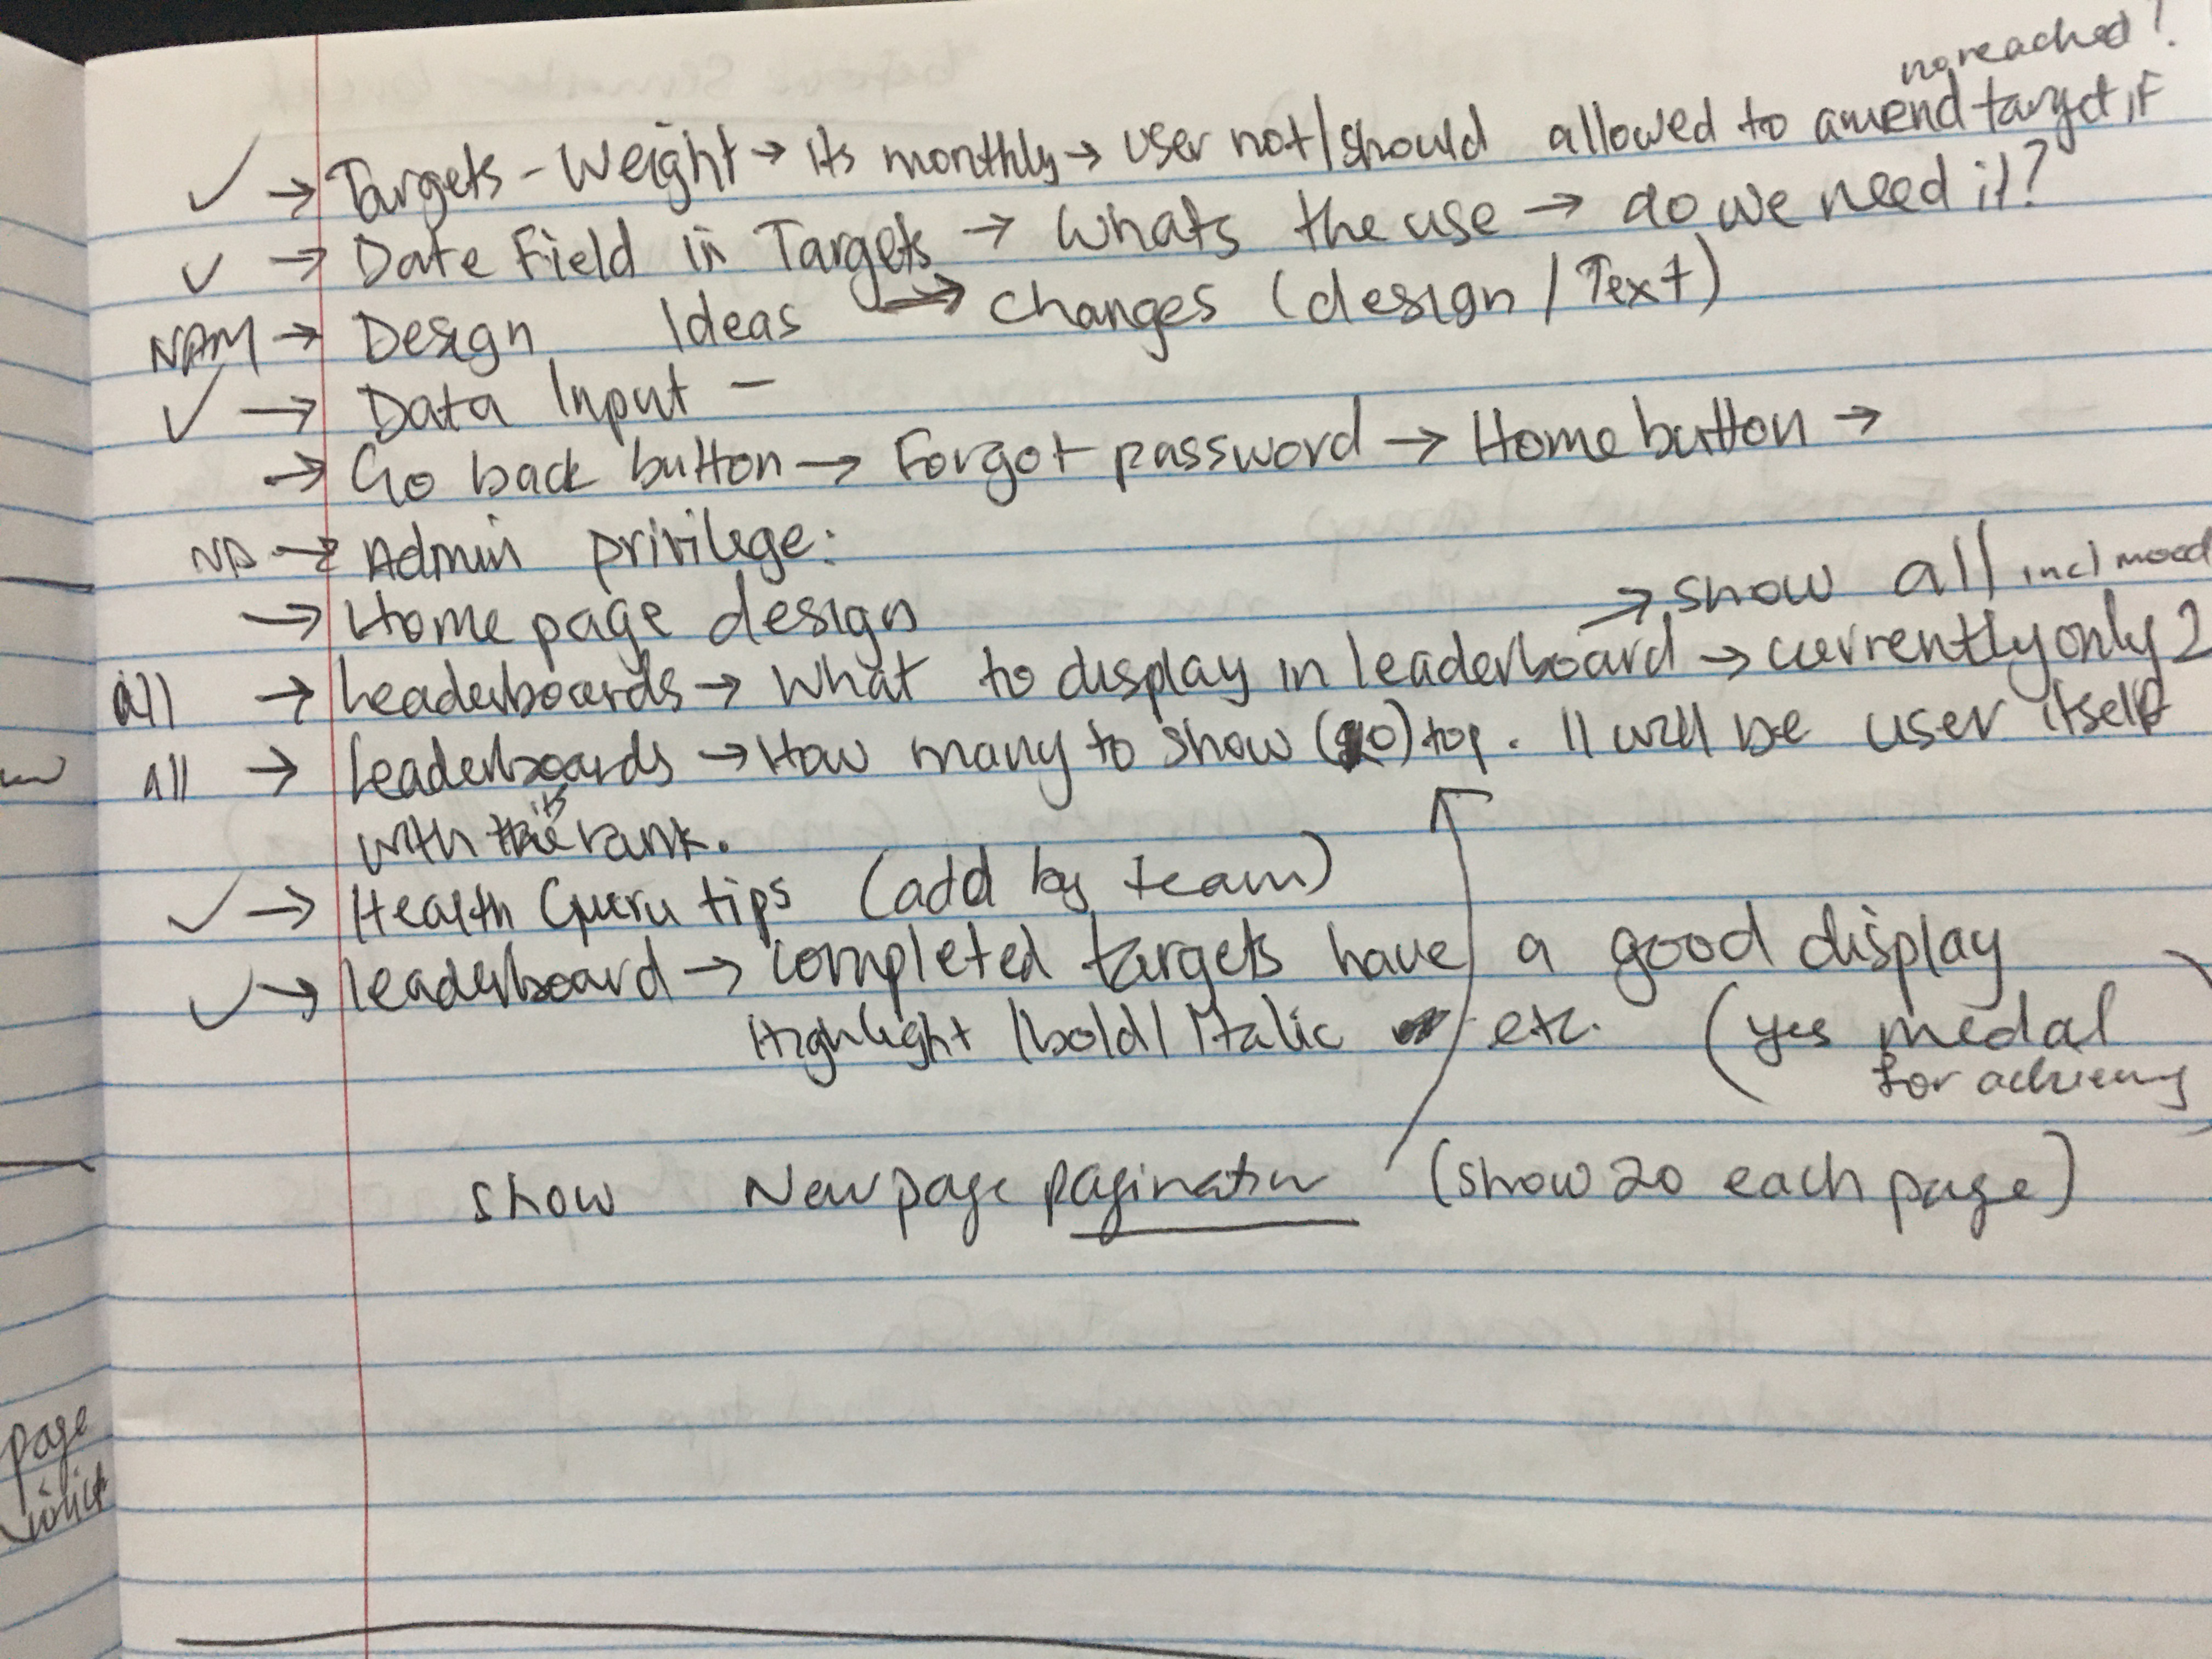 no reached?
✓ → Targets - Weight → its monthly → user not/should allowed to amend target if
✓ → Date Field in Targets → Whats the use → do we need it?
NAM → Design Ideas → changes (design / Text)
✓ → Data Input -
→ Go back button → Forgot password → Home button →
NA → Admin privilege:
→ Home page design
→ show all incl mood
all → Leaderboards → What to display in leaderboard → currently only 2
all → Leaderboards → How many to show (10) top. 11 will be user itself
with its rank.
✓ → Health Guru tips (add by team)
✓ → leaderboard → completed targets have a good display
Highlight / bold / Italic etc. (yes medal
for achieving)
show New page pagination (show 20 each page)
page